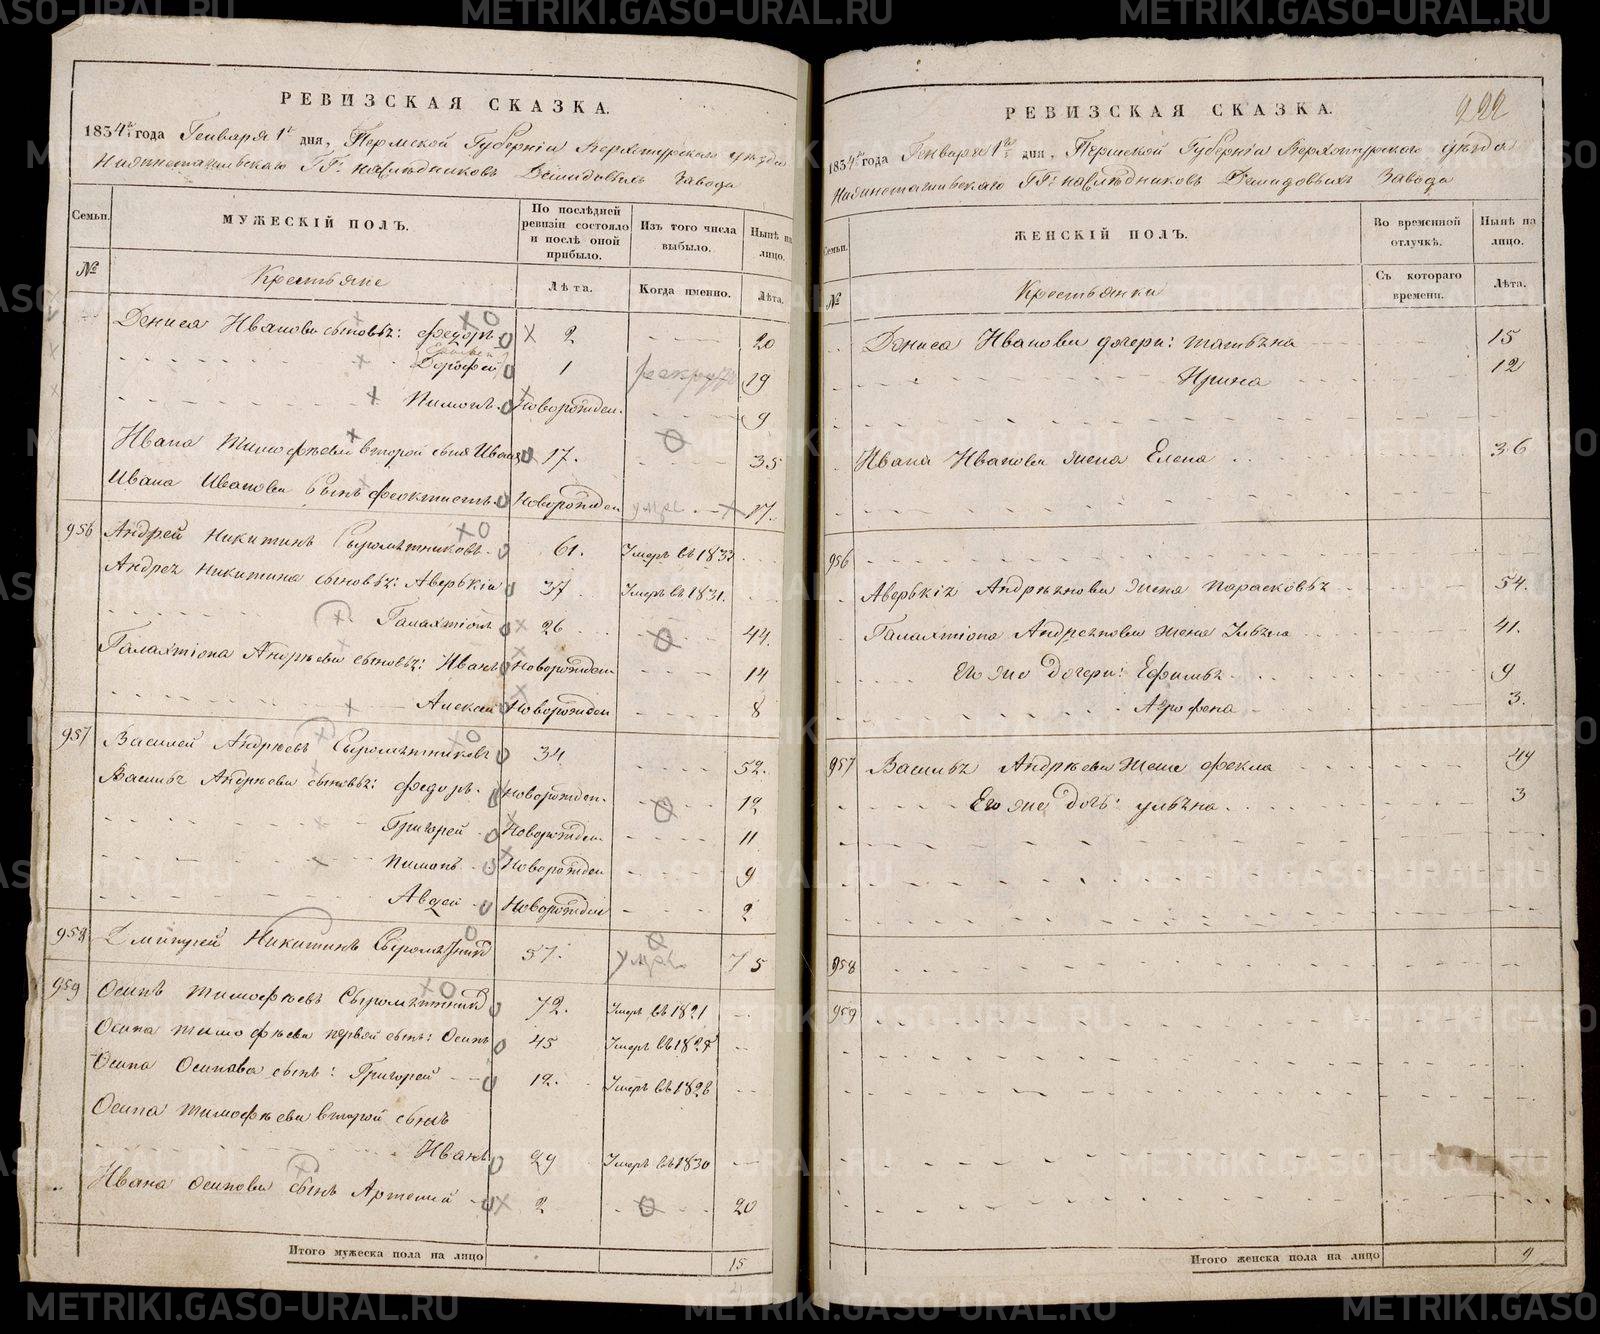 РЕВИЗСКАЯ СКАЗКА.
1834го года Генваря 1го дня, Пермской Губерніи Верхотурского уѣзда
Нижнетагильскаго ГГ. наслѣдниковъ Демидовыхъ Завода
Семьи.
МУЖЕСКІЙ ПОЛЪ.
По послѣдней ревизіи состояло и послѣ оной прибыло.
Изъ того числа выбыло.
Нынѣ на лицо.
№
Крестьяне
Лѣта.
Когда именно.
Лѣта.
Дениса Иванова сыновья: Федоръ 2 20
Дорофей 1 рекрут 19
Пимонъ Новорожден. 9
Ивана Тимофѣева второй сынъ Иванъ 17. 35
Ивана Иванова сынъ Феоктистъ Новорожден умре 17.
956 Андрей Никитинъ Сыромятниковъ 61. Умеръ въ 1833
Андрея Никитина сыновья: Аверькій 37 Умеръ въ 1831.
Галахтіонъ 26 44.
Галахтіона Андрѣева сыновья: Иванъ Новорожден 14
Алексѣй Новорожден 8
957 Василей Андрѣевъ Сыромятниковъ 34 52.
Василья Андрѣева сыновья: Федоръ Новорожден. 12
Григорей Новорожден 11
Пимонъ Новорожден 9
Авдей Новорожден 2
958 Дмитрей Никитинъ Сыромятник 57. умре 75
959 Осипъ Тимофѣевъ Сыромятник 72. Умеръ въ 1821
Осипа Тимофѣева первой сынъ: Осипъ 45 Умеръ въ 1827
Осипа Осипова сынъ: Григорей 12. Умеръ въ 1826
Осипа Тимофѣева второй сынъ
Иванъ 29 Умеръ въ 1830
Ивана Осипова сынъ Артемий 2 20
Итого мужеска пола на лицо 15
222
РЕВИЗСКАЯ СКАЗКА.
1834го года Генваря 1го дня, Пермской Губерніи Верхотурского уѣзда
Нижнетагильскаго ГГ. наслѣдниковъ Демидовыхъ Завода
Семьи.
ЖЕНСКІЙ ПОЛЪ.
Во временной отлучкѣ.
Нынѣ на лицо.
№
Крестьянки
Съ котораго времени.
Лѣта.
Дениса Иванова дочери: Татьяна 15
Ирина 12
Ивана Иванова жена Елена 36
956
Аверькія Андрѣянова жена Парасковья 54.
Галахтіона Андрѣянова жена Ульяна 41.
Его же дочери: Ефимья 9
Агрофена 3.
957 Василья Андрѣева жена Фекла 49
Его же дочь: Ульяна 3
958
959
Итого женска пола на лицо 9
METRIKI.GASO-URAL.RU